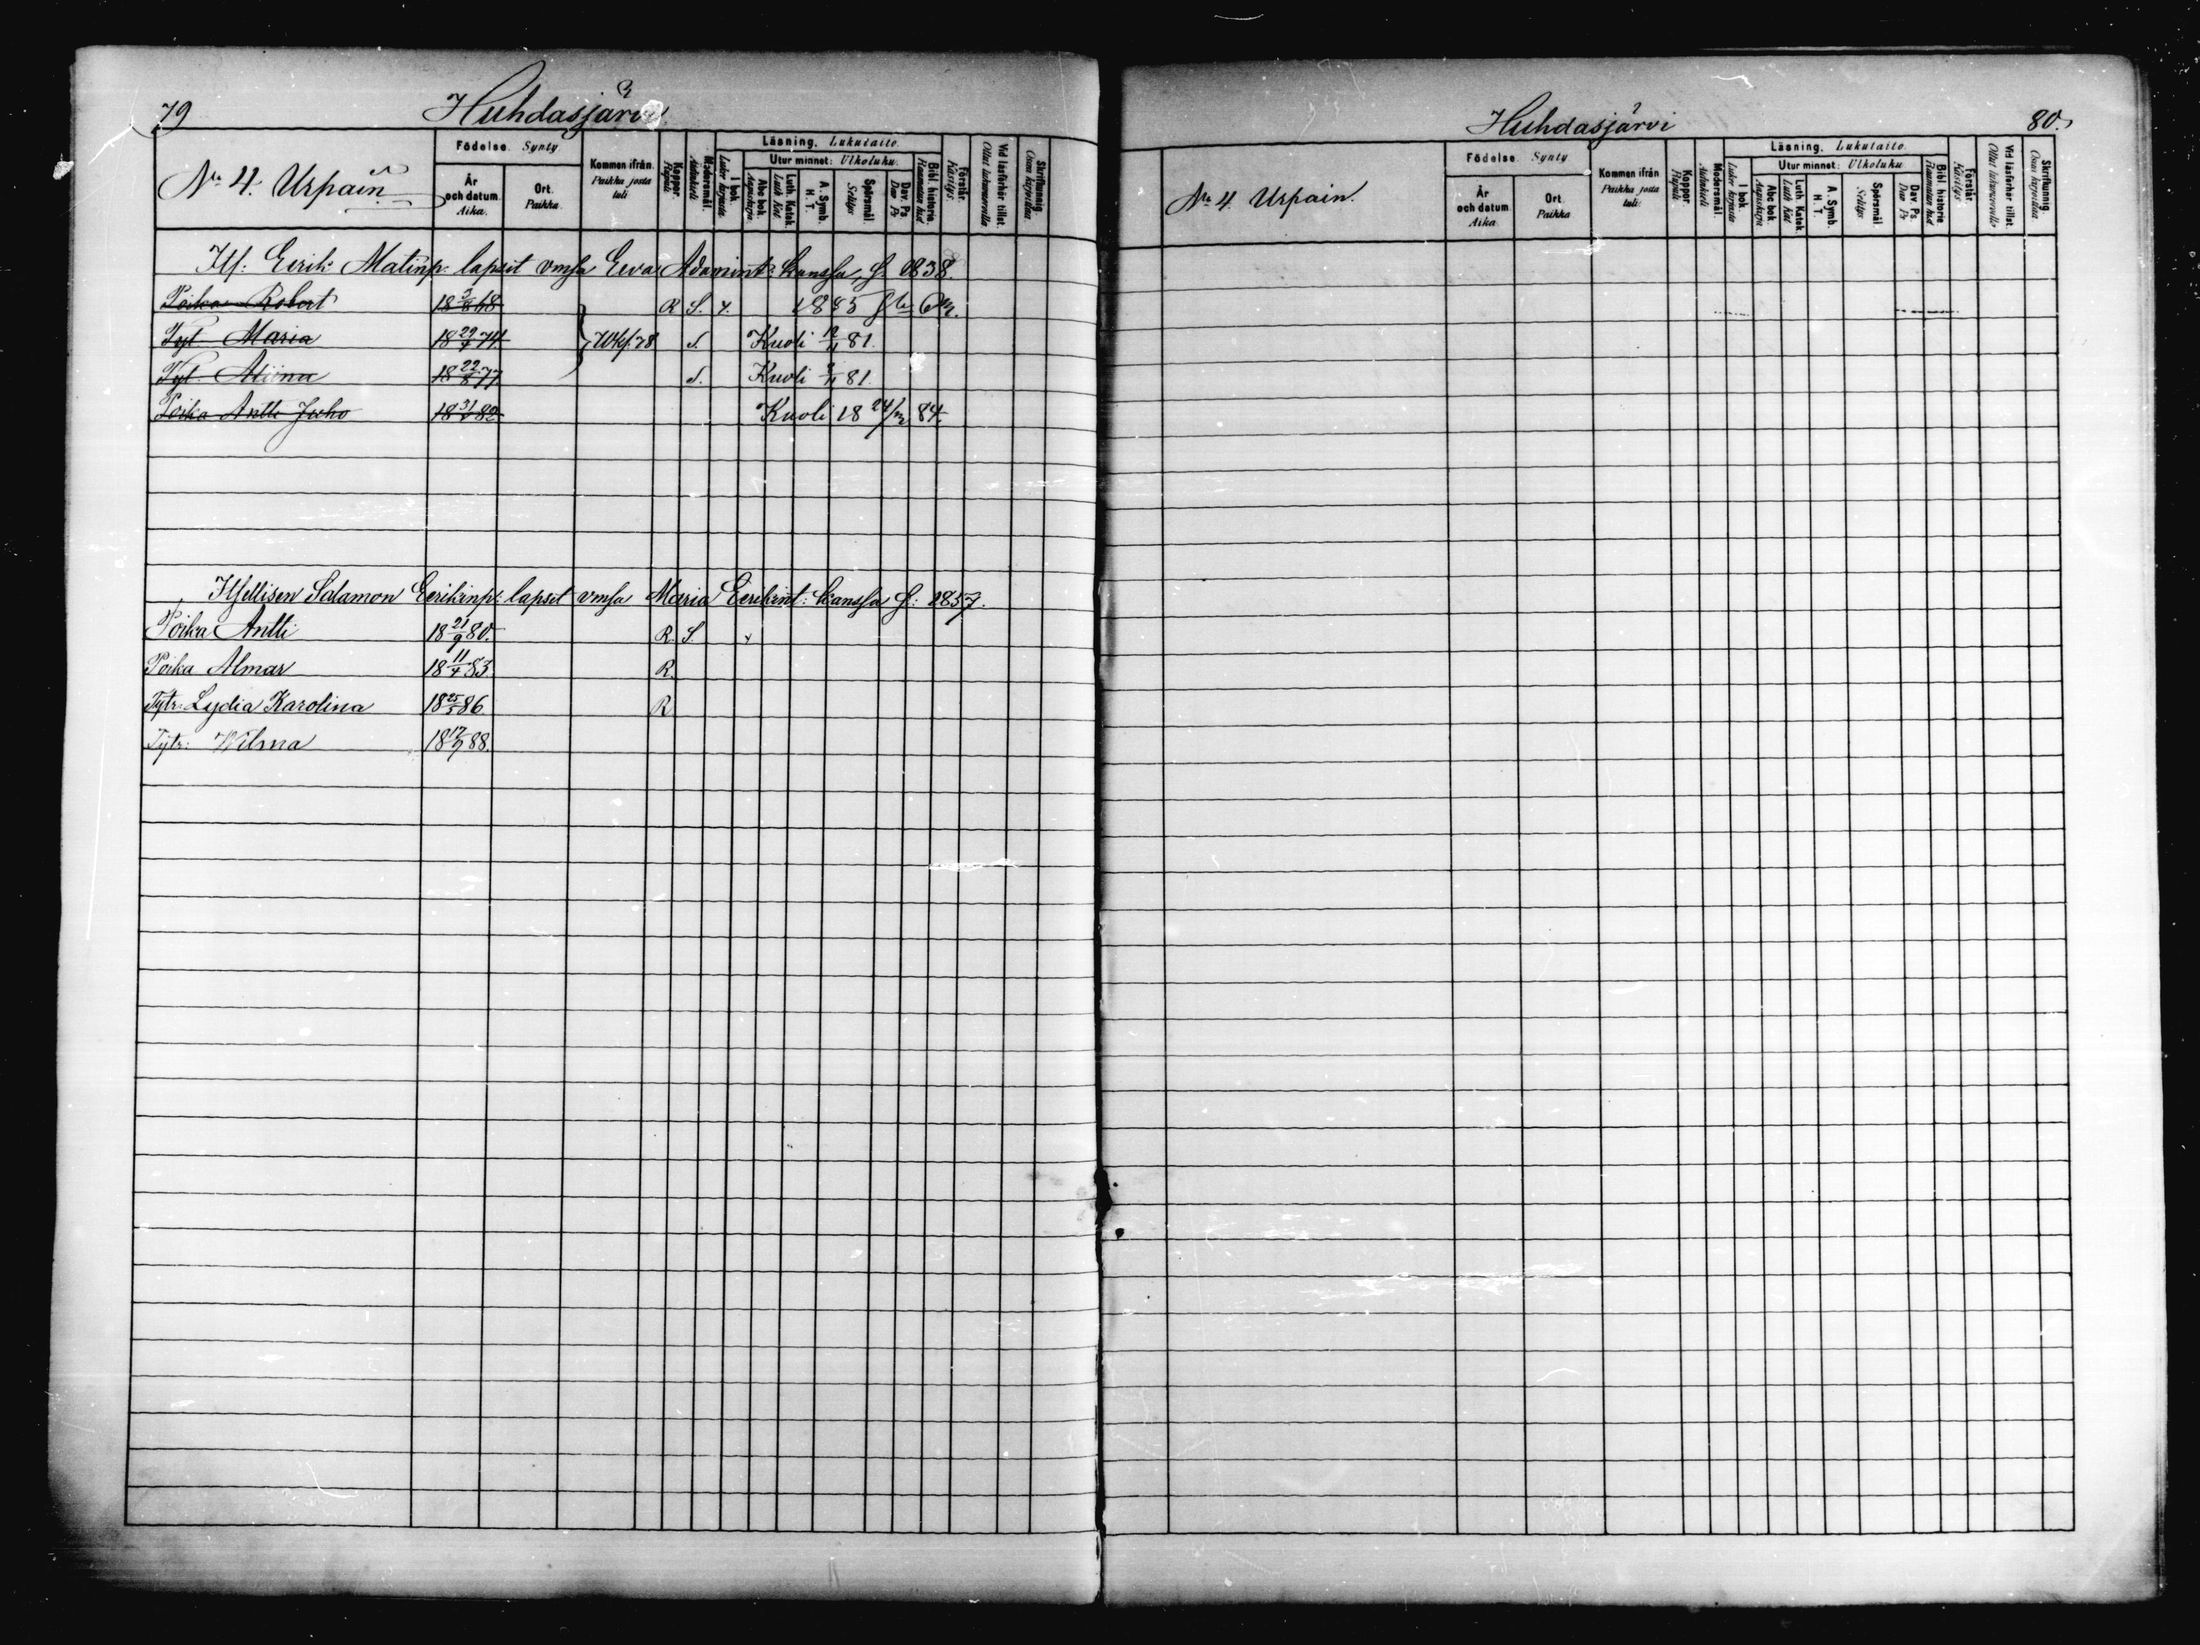 79
Huhdasjärvi
No 4. Urpain
Födelse. Synty
År och datum Aika.
Ort. Paikka.
Kommen ifrån. Paikka josta tuli
Koppor. Rupuli
Modersmål. Äidinkieli
Läsning. Lukutaito.
I bok.
Utur minnet: Ulkoluku.
Abc bok.
Luth. Katek.
A. Symb. H. T.
Spörsmål. Selitys
Dav. Ps.
Bibl. historie.
Förstår. Käsitys.
Vid läsförhör tillst.
Skriftkunnig.
Itf: Eerik Matinp: lapset vmsa Eeva Adamint: kanssa, s. 1838.
Poika Robert 18 3/8 68 R S. x. 1885
Tyt. Maria 18 29/7 74 S. Kuoli 12/11 81.
Tyt. Aliina 18 22/8 77 S. Kuoli 81.
Poika Antti Juho 82 Kuoli 18 24/12 84.
Itsellisen Salamon Eerikinp: lapset vmsa Maria Eerikint: kanssa s: 1857.
Poika Antti 18 21/9 80. R. S. x
Poika Almar 18 11/4 83. R.
Tytr: Lydia Karolina 18 25/5 86. R
Tytr: Wilma 18 17/9 88.
Huhdasjärvi
80.
No 4. Urpain.
Födelse Synty
År och datum Aika
Ort. Paikka
Kommen ifrån Paikka josta tuli:
Koppor Rupuli
Modersmål Äidinkieli
Läsning. Lukutaito.
I bok.
Utur minnet: Ulkoluku
Abc bok.
Luth. Katek.
A. Symb. H. T.
Spörsmål Selitys
Dav. Ps.
Bibl historie
Förstår Käsitys
Vid läsförhör tillst
Skriftkunnig.